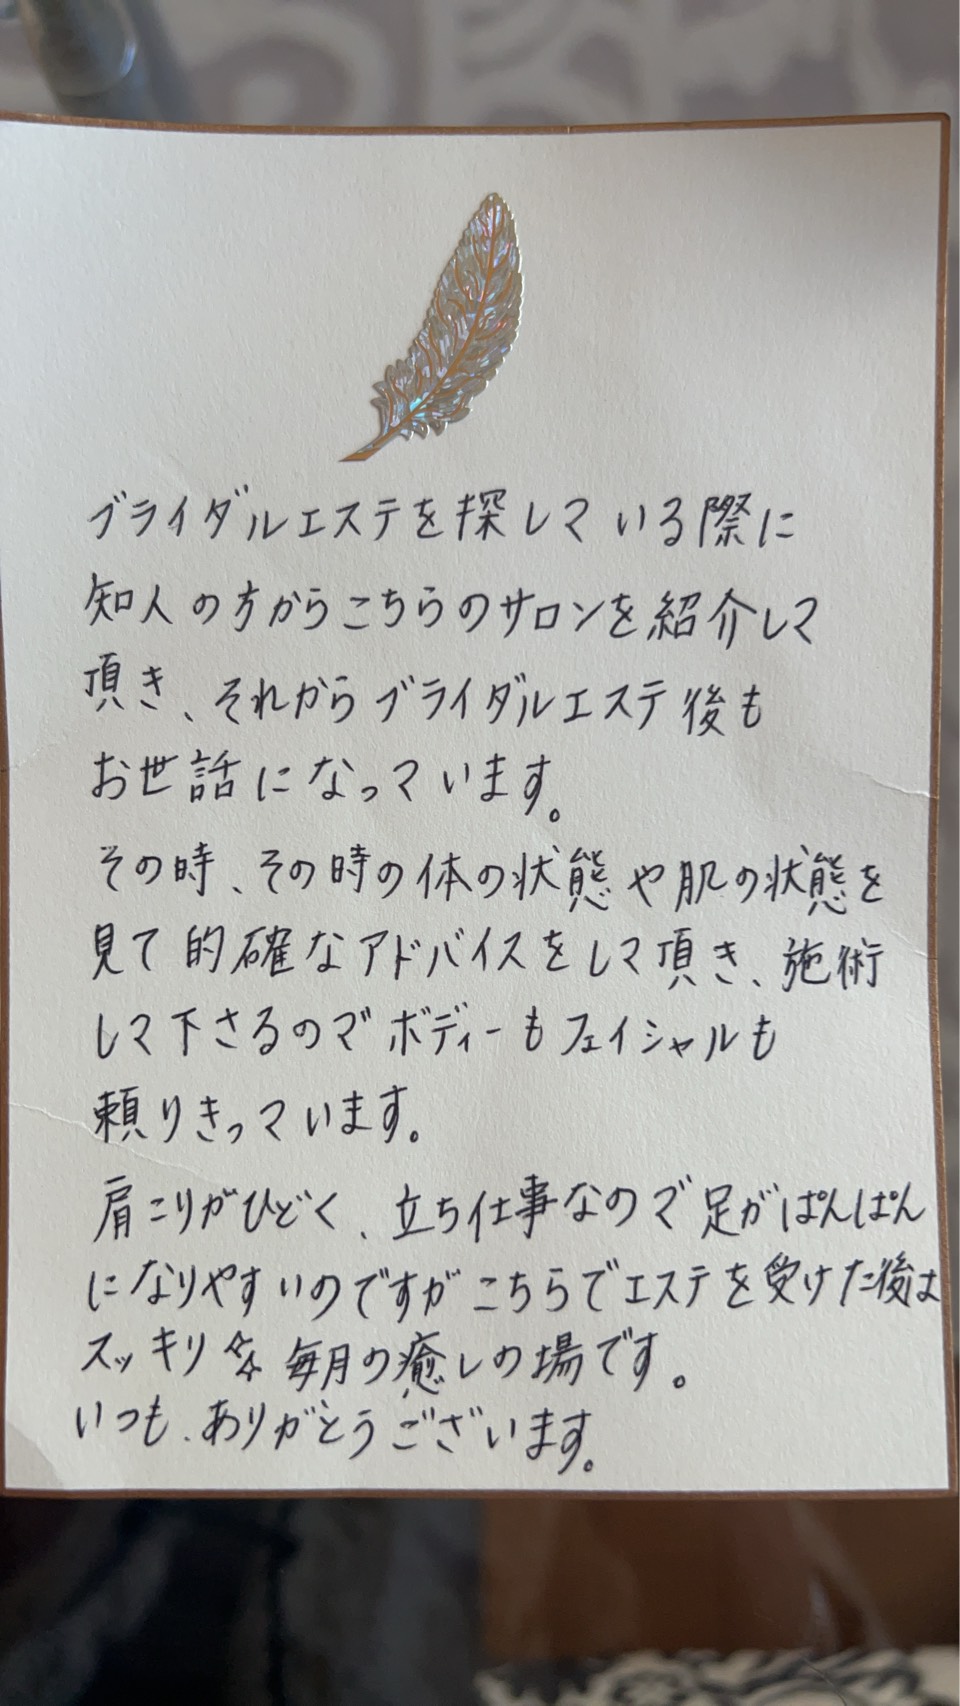 ブライダルエステを探している際に
知人の方からこちらのサロンを紹介して
頂き、それからブライダルエステ後も
お世話になっています。
その時、その時の体の状態や肌の状態を
見て的確なアドバイスをして頂き、施術
して下さるのでボディーもフェイシャルも
頼りきっています。
肩こりがひどく、立ち仕事なので足がぱんぱん
になりやすいのですがこちらでエステを受けた後は
スッキリ☆☆毎月の癒しの場です。
いつも、ありがとうございます。